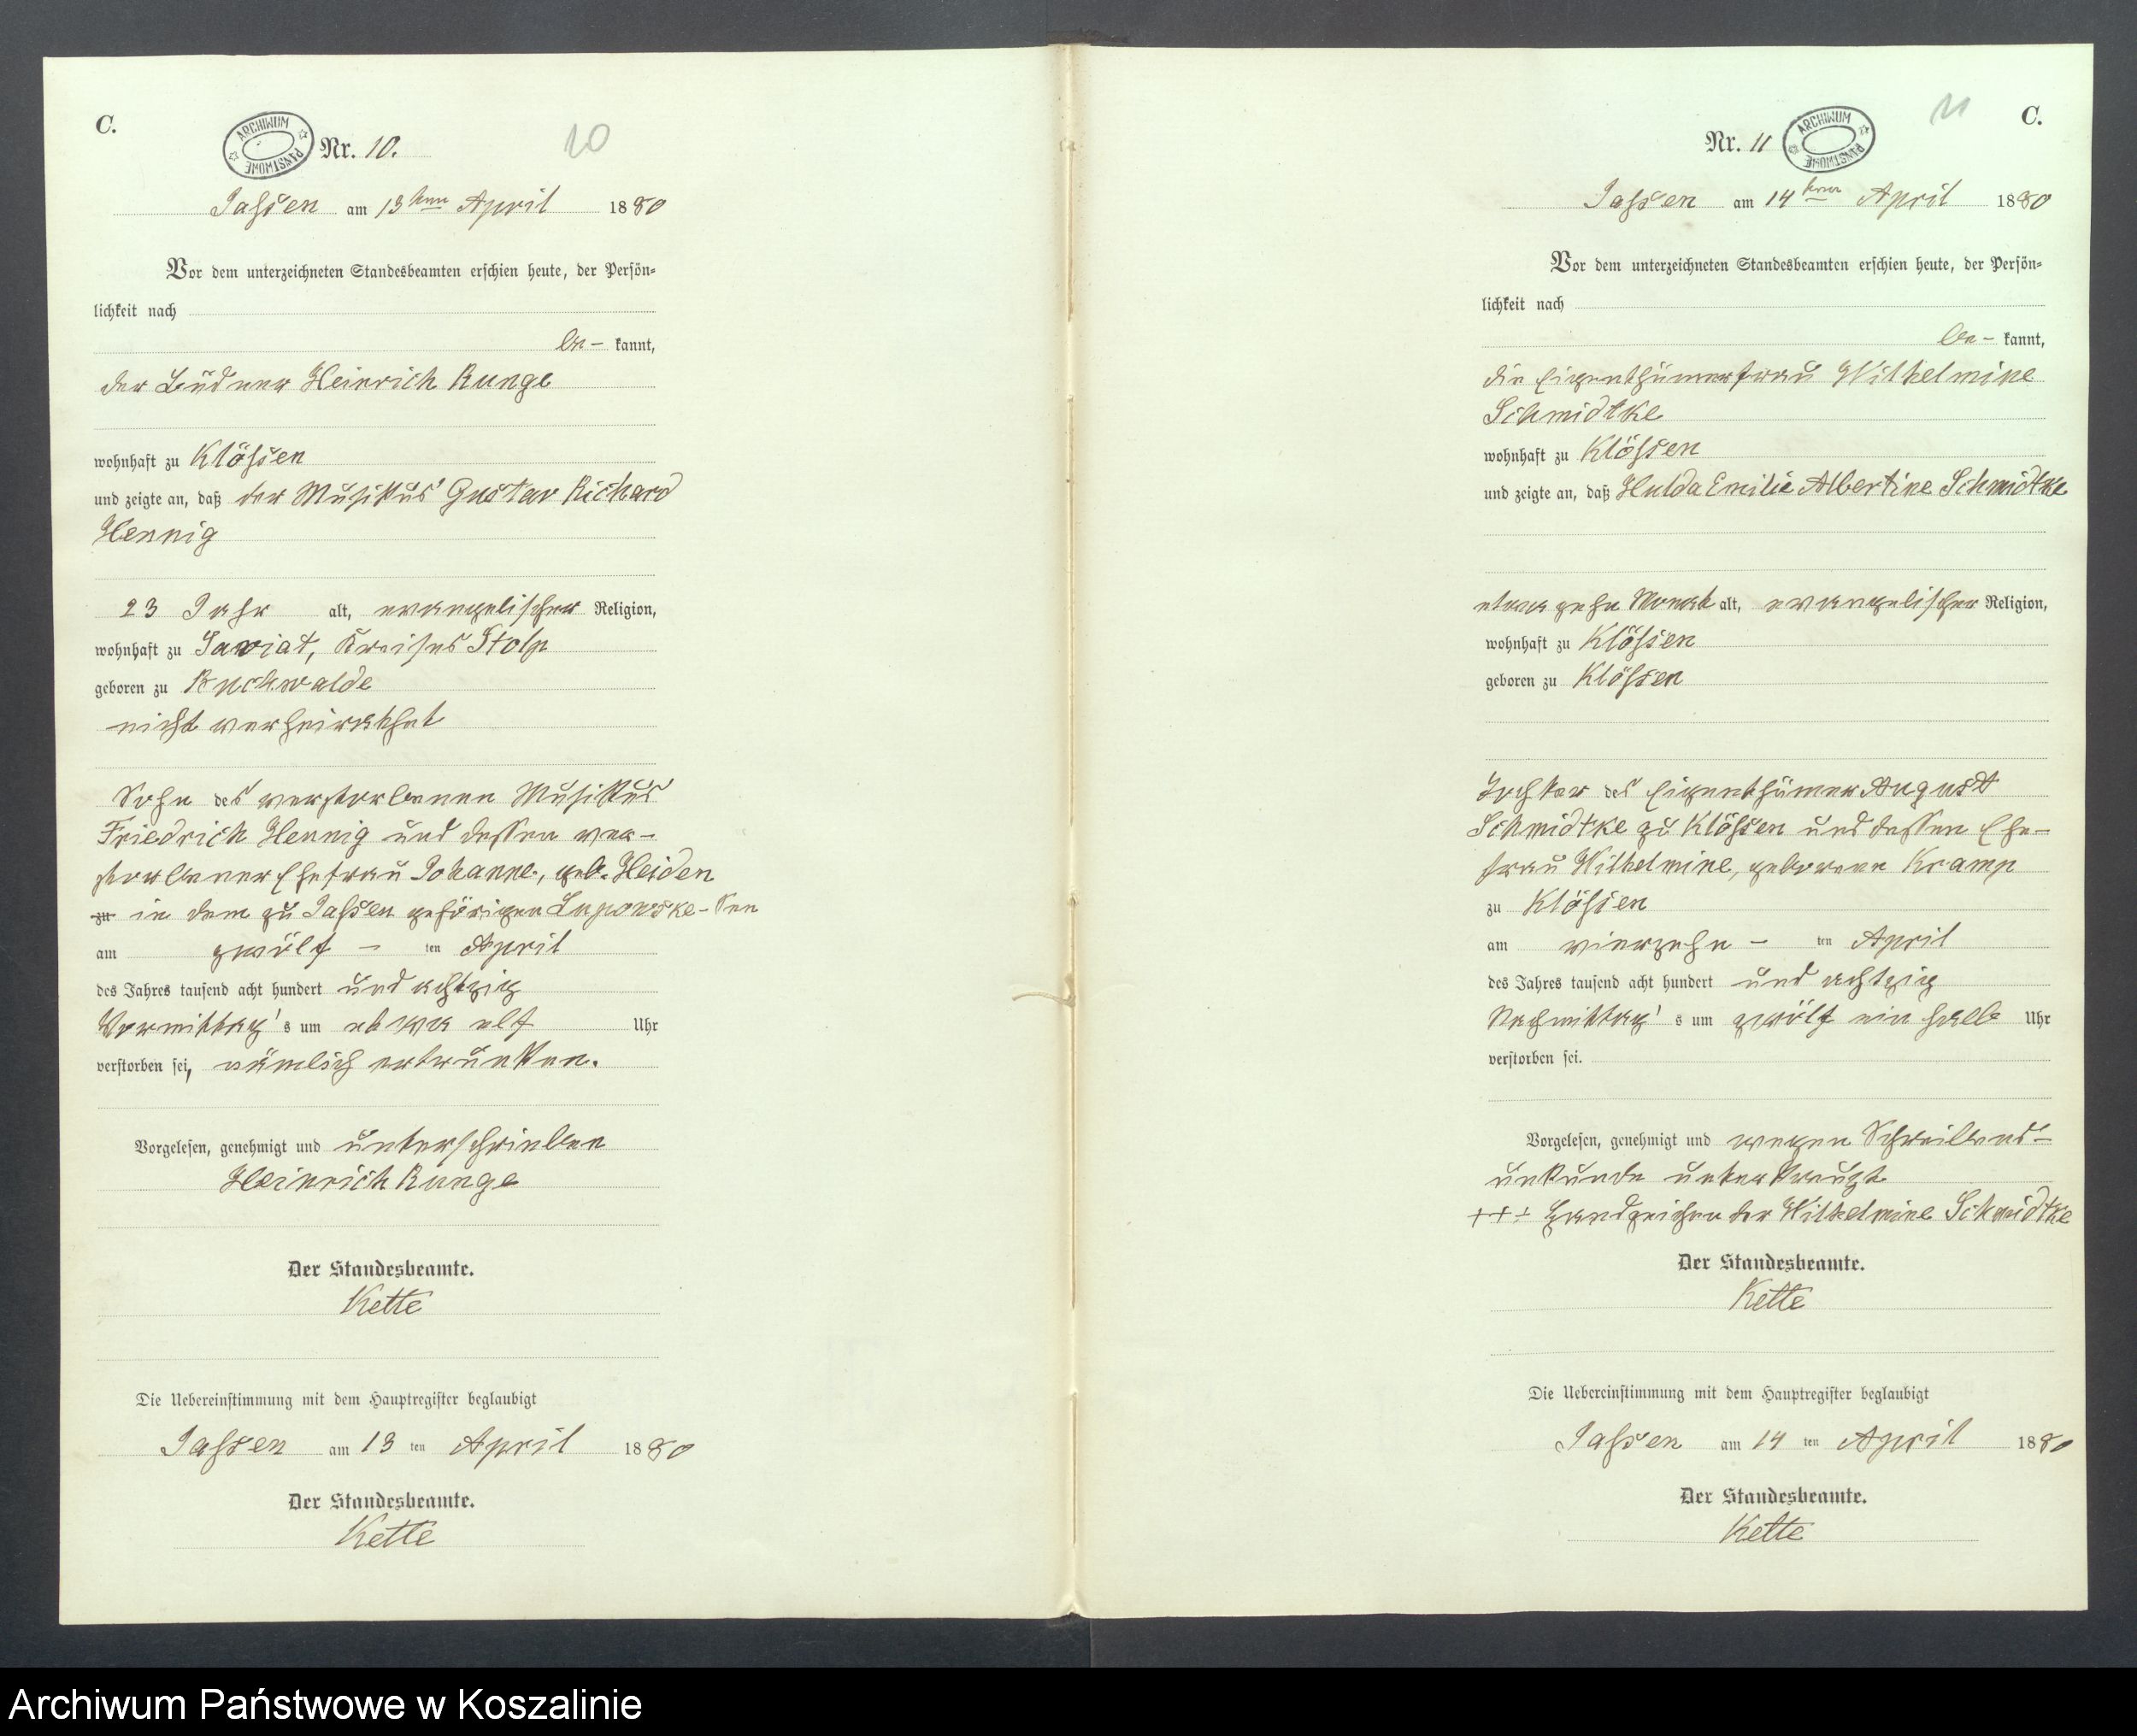 C.
ARCHIWUM PAŃSTWOWE
Nr. 10.
10
Jassen am 13ten April 1880
Vor dem unterzeichneten Standesbeamten erschien heute, der Persön=
lichkeit nach
be- kannt,
der Büdner Heinrich Runge
wohnhaft zu Klössen
und zeigte an, daß der Musikus Gustav Richard
Hennig
23 Jahr alt, evangelischer Religion,
wohnhaft zu Saviat, Kreises Stolp
geboren zu Buchwalde
nicht verheirathet
Sohn des verstorbenen Musikus
Friedrich Hennig und dessen ver-
storbener Ehefrau Johanne, geb. Heiden
zu in dem zu Jassen gehörigen Lupowske-See
am zwölf - ten April
des Jahres tausend acht hundert und achtzig
Vormittag's um etwa elf Uhr
verstorben sei, nämlich ertrunken.
Vorgelesen, genehmigt und unterschrieben
Heinrich Runge
Der Standesbeamte.
Kette
Die Uebereinstimmung mit dem Hauptregister beglaubigt
Jassen am 13 ten April 1880
Der Standesbeamte.
Kette
11
C.
Nr. 11
ARCHIWUM PAŃSTWOWE
Jassen am 14ten April 1880
Vor dem unterzeichneten Standesbeamten erschien heute, der Persön=
lichkeit nach
be- kannt,
die Eigenthümerfrau Wilhelmine
Schmidtke
wohnhaft zu Klössen
und zeigte an, daß Hulda Emilie Albertine Schmidtke
etwa zehn Monat alt, evangelischer Religion,
wohnhaft zu Klössen
geboren zu Klössen
Tochter des Eigenthümer August
Schmidtke zu Klössen und dessen Ehe-
frau Wilhelmine, geborene Kramp
zu Klössen
am vierzehn - ten April
des Jahres tausend acht hundert und achtzig
Nachmittag's um zwölf ein halb Uhr
verstorben sei.
Vorgelesen, genehmigt und wegen Schreibens-
unkunde unterkreuzt
+++ Handzeichen der Wilhelmine Schmidtke
Der Standesbeamte.
Kette
Die Uebereinstimmung mit dem Hauptregister beglaubigt
Jassen am 14 ten April 1880
Der Standesbeamte.
Kette
Archiwum Państwowe w Koszalinie